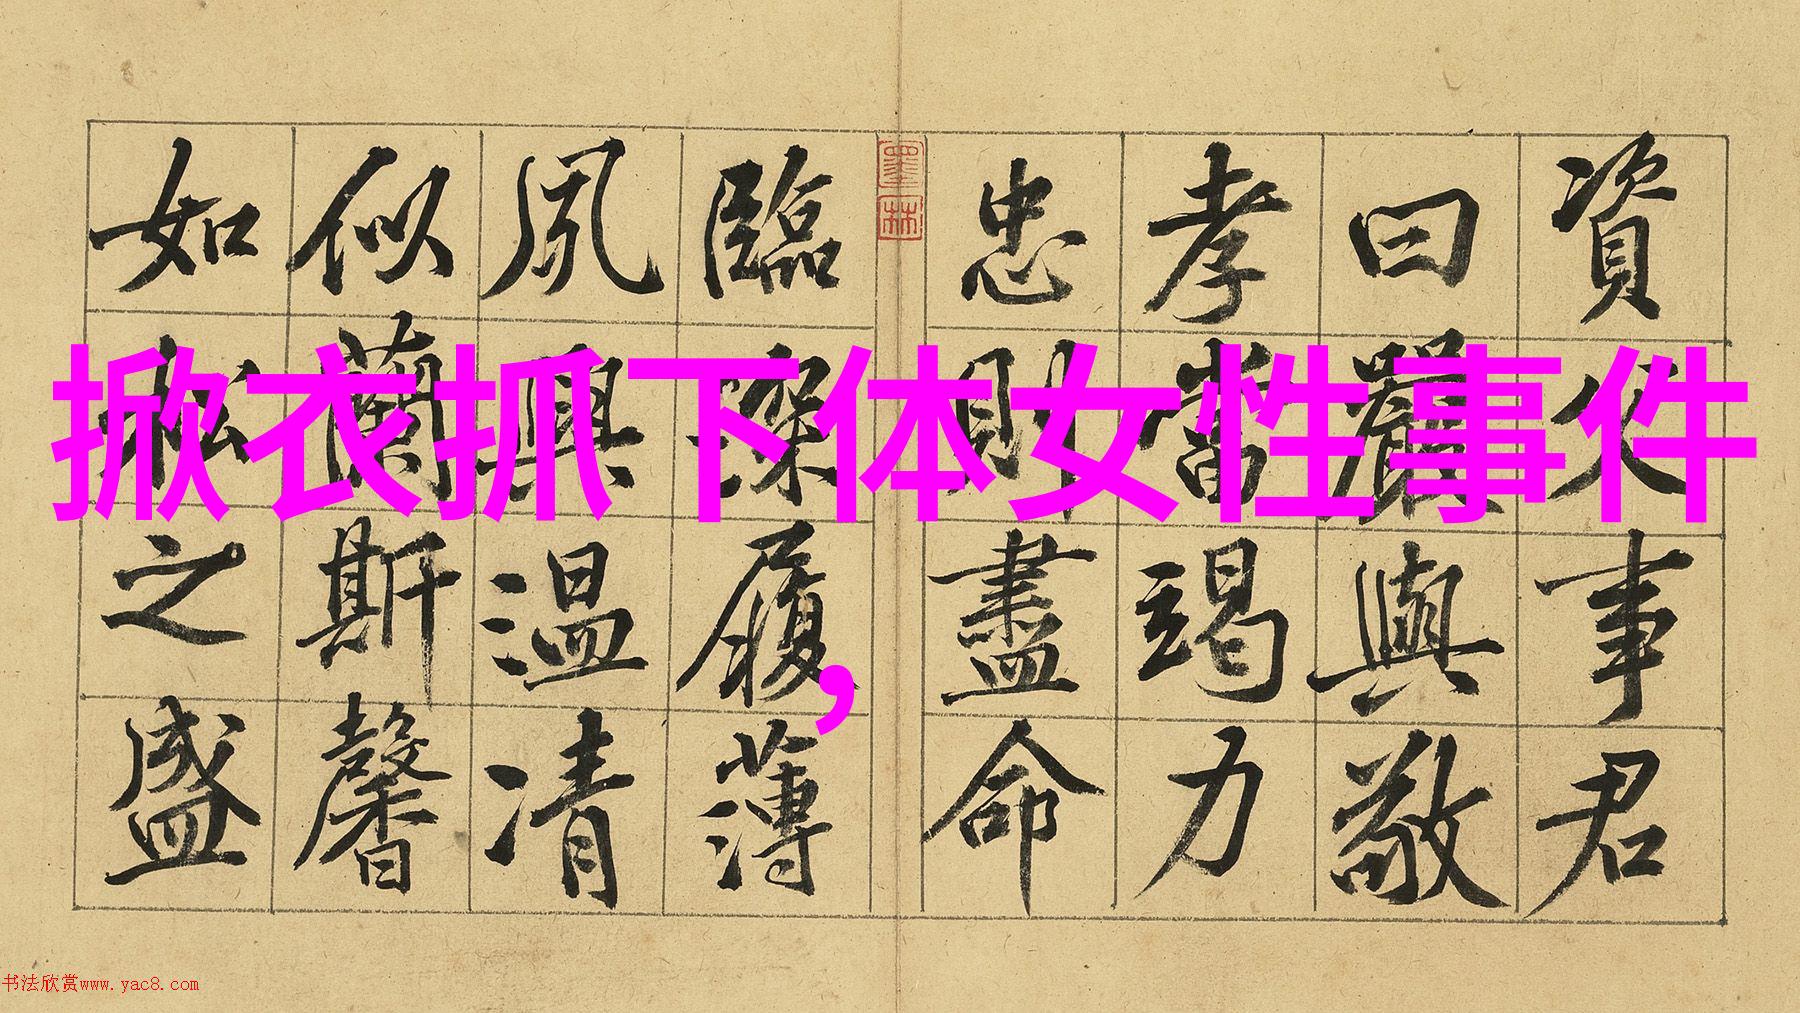 資父事君
曰嚴與敬
孝當竭力
忠則盡命
臨深履薄
夙興温凊
似蘭斯馨
如松之盛
墨林
掀衣抓下体女性事件
，
书法欣赏www.yac8.com